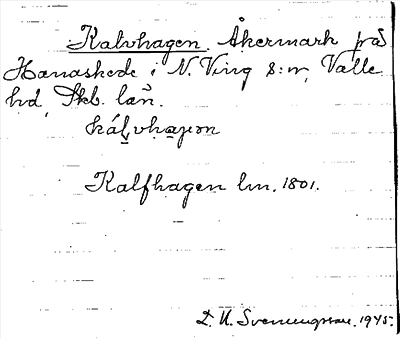 Kalvhagen. Åkermark på
Hanaskede i N. Ving s:n, Valle
hd, Skb. län.
Kalfhagen lm. 1801.
D. U. Svenungsson. 1945.